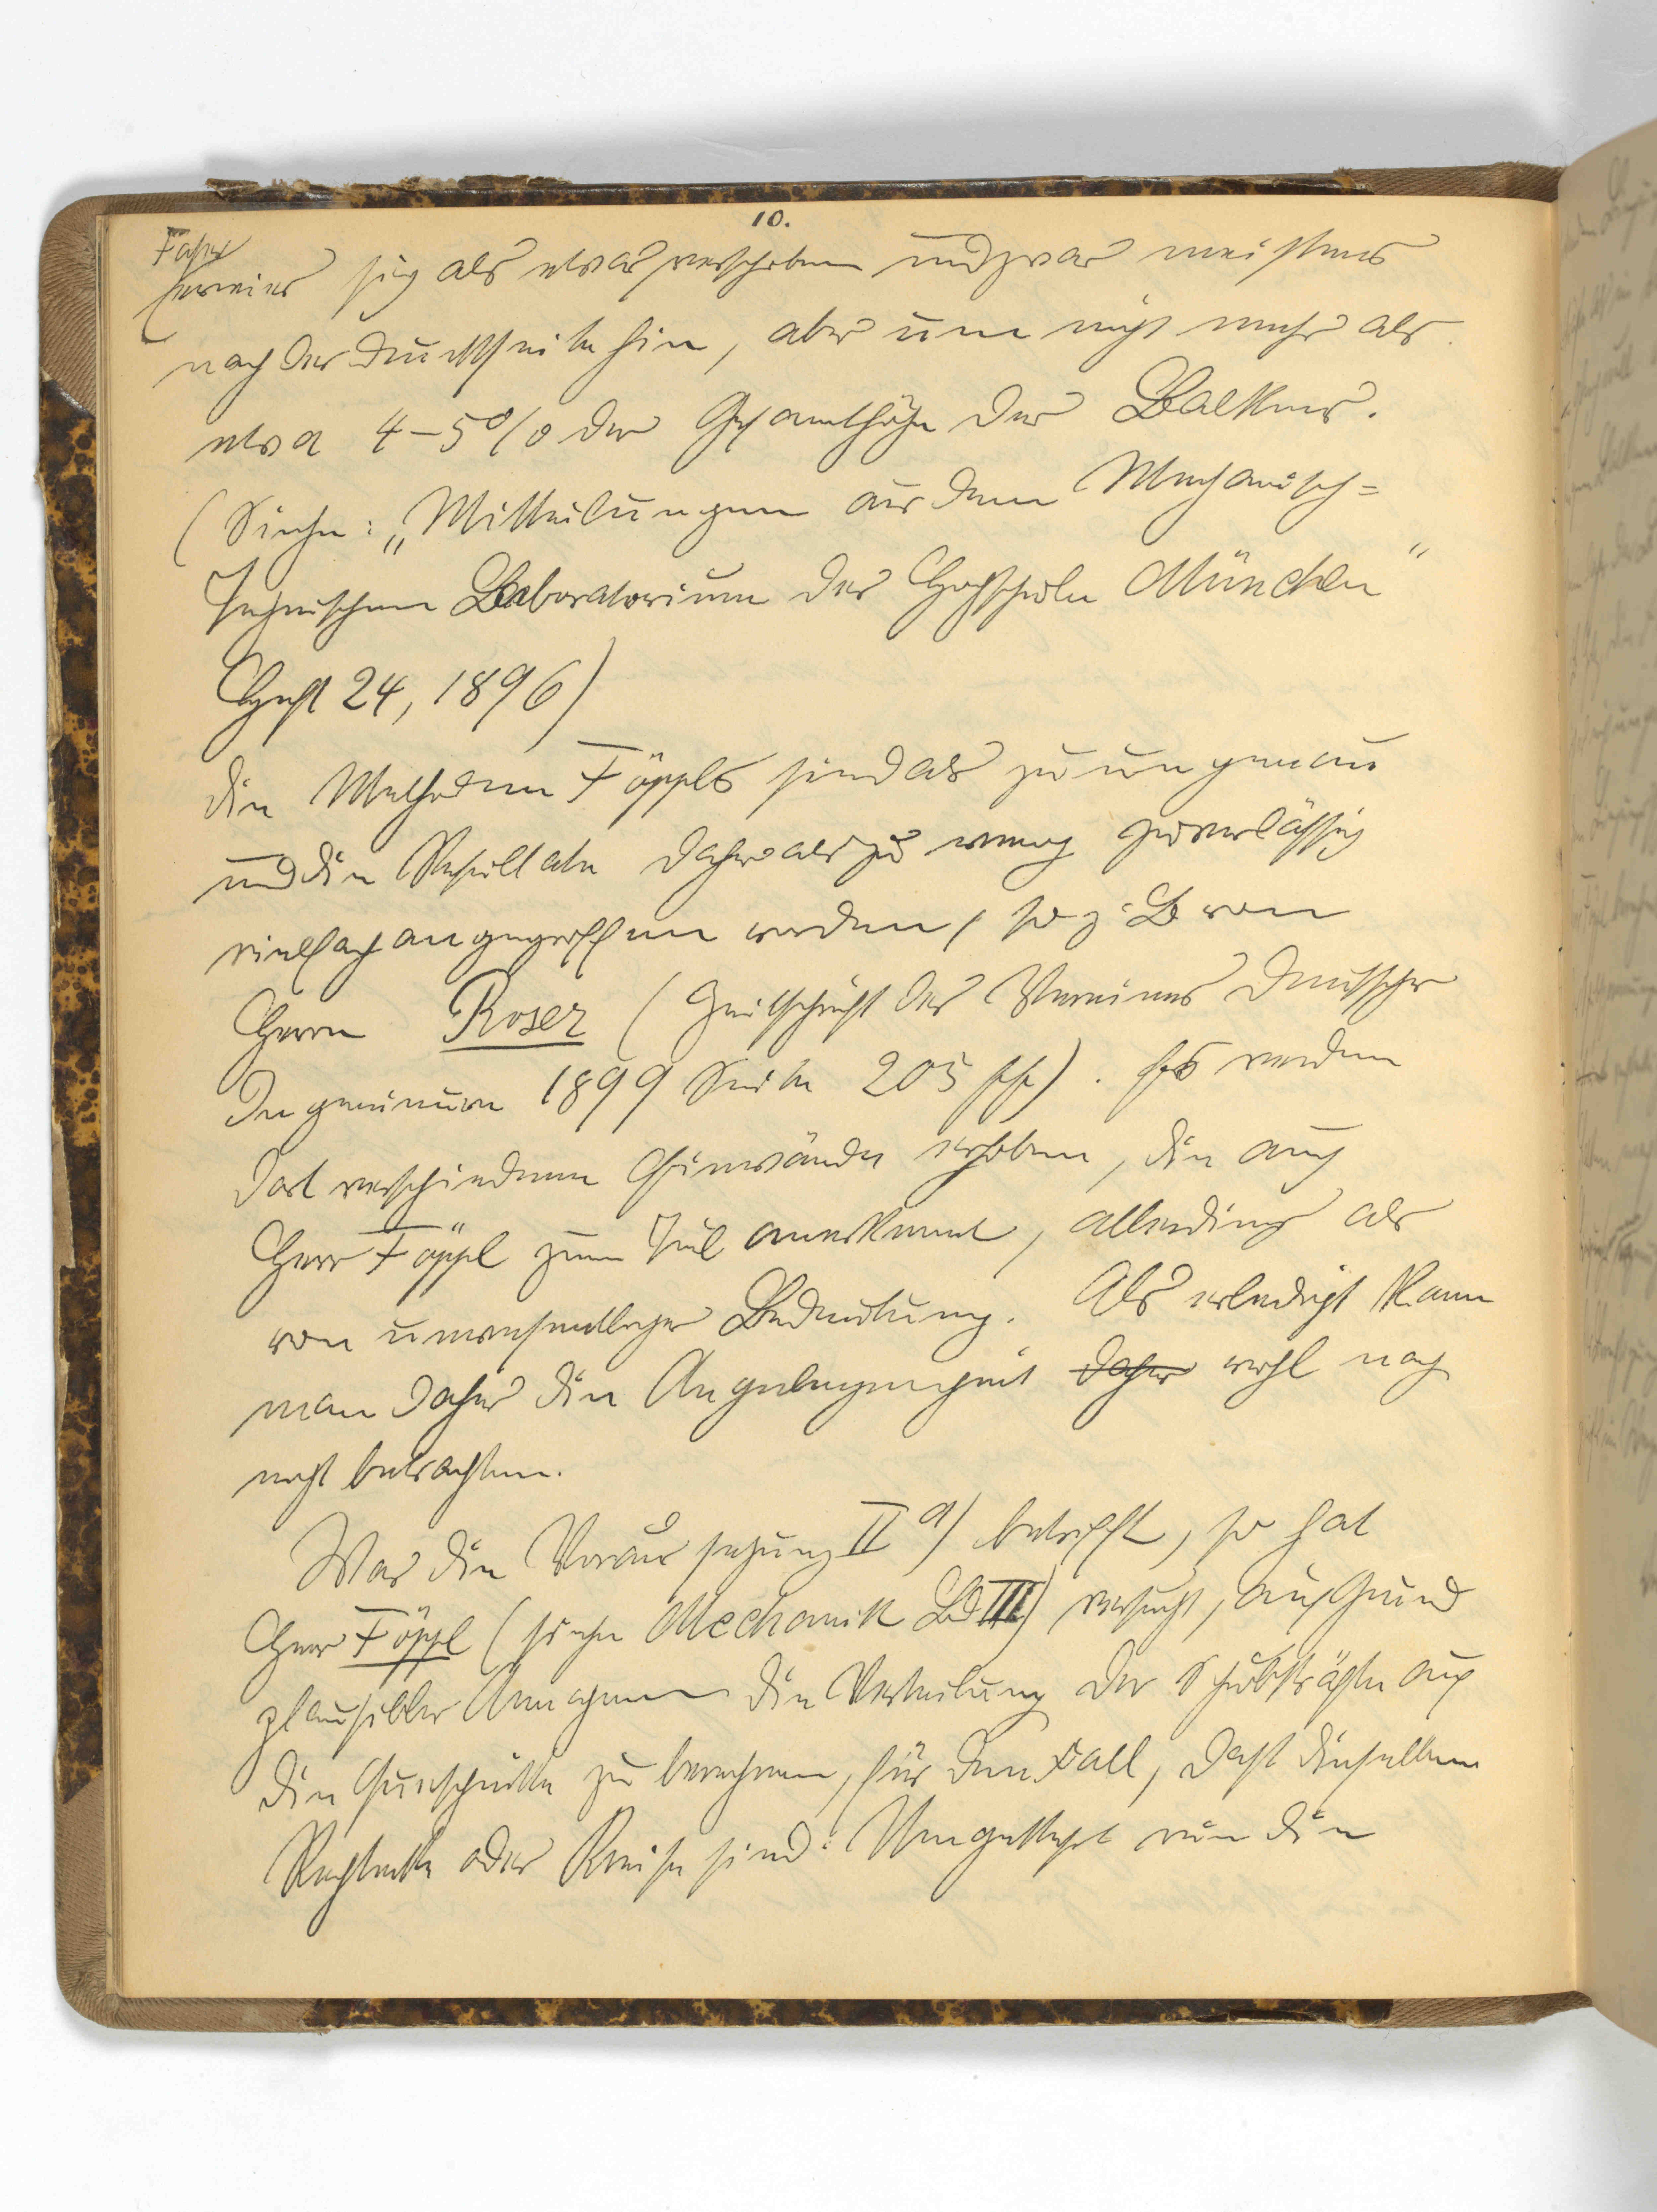 10.
Faser
erwies sich als etwas verschoben und zwar meistens
nach der Druckseite hin, aber um nicht mehr als
etwa 4–5% der Gesamthöhe des Balkens.
(Siehe: „Mitteilungen aus dem Mechanisch=
Technischen Laboratorium der Hochschule München“
Heft 24, 1896)
Die Methoden Föppls sind als zu ungenau
und die Resultate daher als zu wenig zuverlässig
vielfach angegriffen worden, so z. B von
Herrn Roser (Zeitschrift des Vereines Deutscher
Ingenieure 1899 Seite 205 ff). Es werden
dort verschiedene Einwände erhoben, die auch
Herr Föppl zum Teil anerkennt, allerdings als
von unwesentlicher Bedeutung. Als erledigt kann
man daher die Angelegenheit daher wohl noch
nicht betrachten.
Was die Voraussetzung II a) betrifft, so hat
Herr Föppl (siehe Mechanik Bd III) versucht, auf Grund
plausibler Annahmen die Verteilung der Schubkräfte auf
die Querschnitte zu berechnen, für den Fall, daß dieselben
Rechtecke oder Kreise sind. Umgekehrt nun die